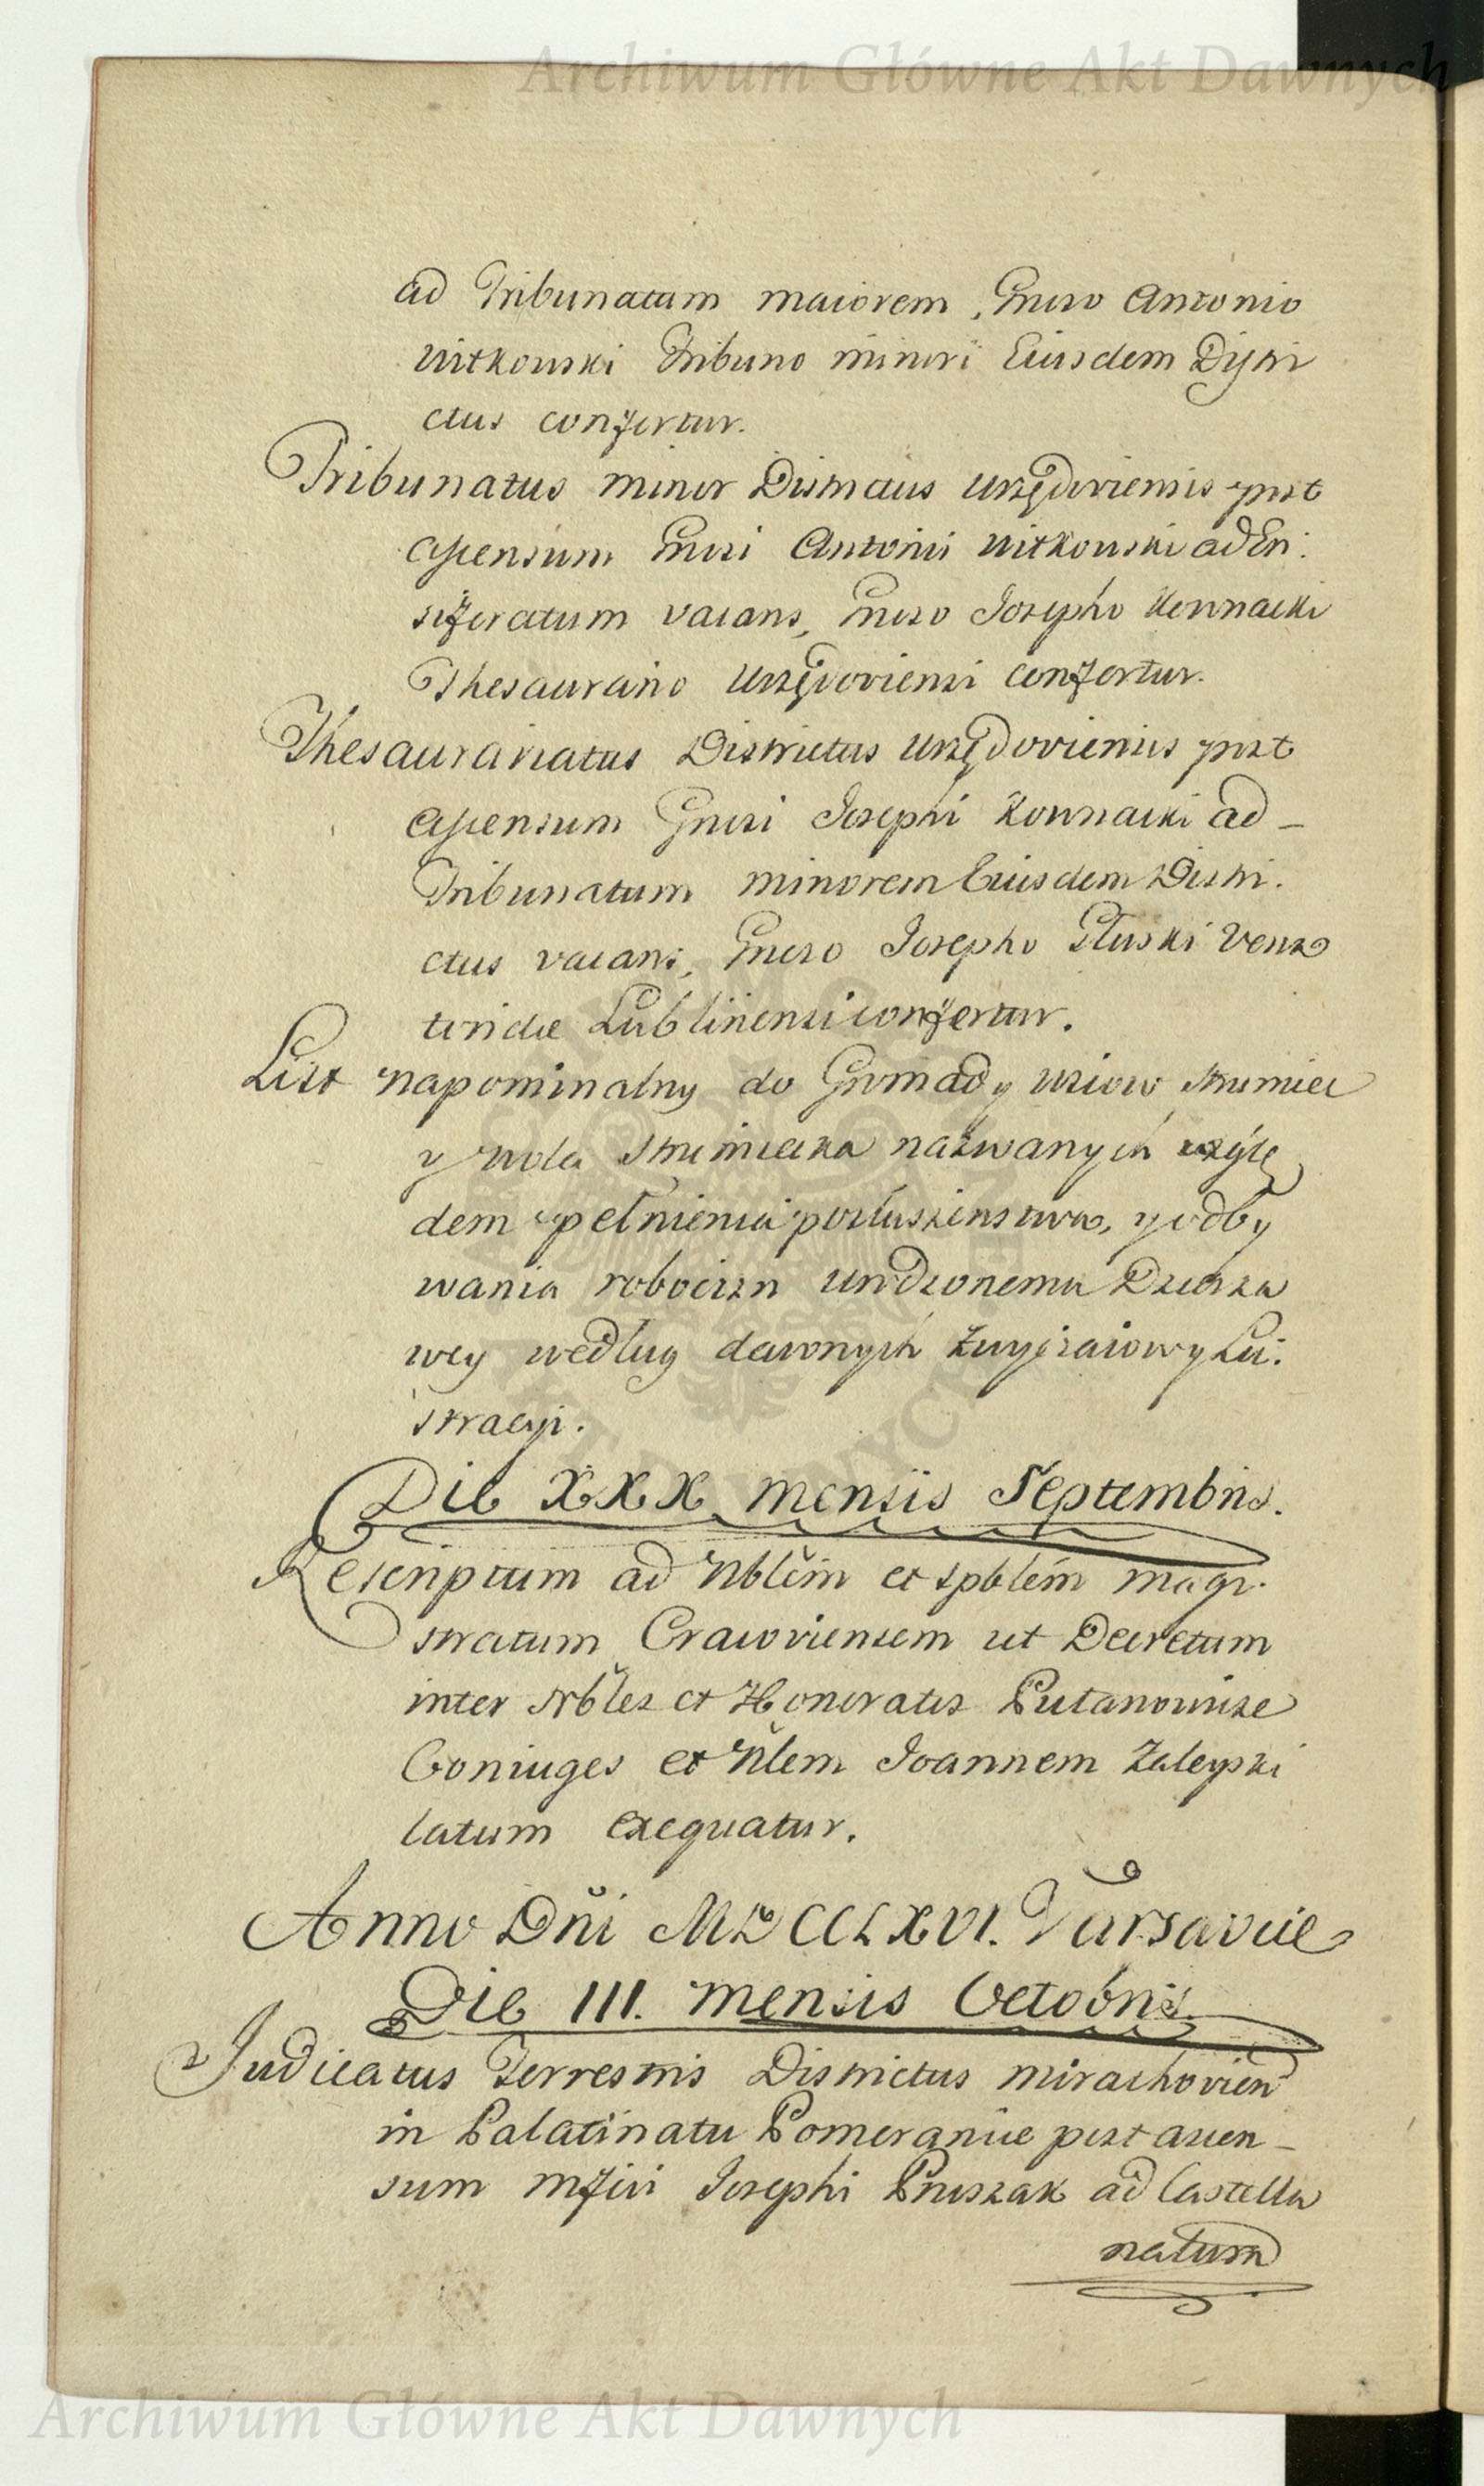 Archiwum Główne Akt Dawnych
ad Tribunatum maiorem, Gnrso Antonio
Witkowski Tribuno minori Eiusdem Distri
ctus confertur.
Tribunatus minor Districtus Urzędoviensis post
ascensum Gnrsi Antonii Witkowski ad En:
siferatum vacans, Gnrso Josepho Kownacki
Thesaurario Urzędoviensi confertur.
Thesaurariatus Districtus Urzędoviensis post
ascensum Gnrsi Josephi Kownacki ad –
Tribunatum minorem Eiusdem Distri.
ctus vacans, Gnrso Josepho Głuski Vena
toridæ Lublinensi confertur.
List napominalny do Gromady wsiow Strumiec
y Wola Strumiecka nazwanych wzglę
dem pełnienia posłuszenstwa, y odby
wania robocizn urodzonemu Dzierza
wcy według dawnych zwyczaiow y Lu:
stracyi.
Die XXX mensis Septembris.
Rescriptum ad Nblem et Spblem Magi.
stratum Cracoviensem ut Decretum
inter Nbles et Honoratos Putanowicze
Coniuges et Nlem Joannem Zaleyski
latum exequatur.
Anno Dñi MDCCLXVI. Varsaviæ
Die III. mensis Octobris
Judicatus Terrestris Districtus Mirachovien
in Palatinatu Pomeraniæ post ascen –
sum Mfici Josephi Pruszak ad Castella
natum
Archiwum Główne Akt Dawnych